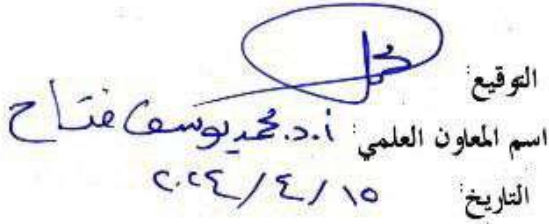 التوقيع
اسم المعاون العلمي أ.د. محمد يوسف فتاح
التاريخ ١٥ / ٤ / ٢٠٢٤